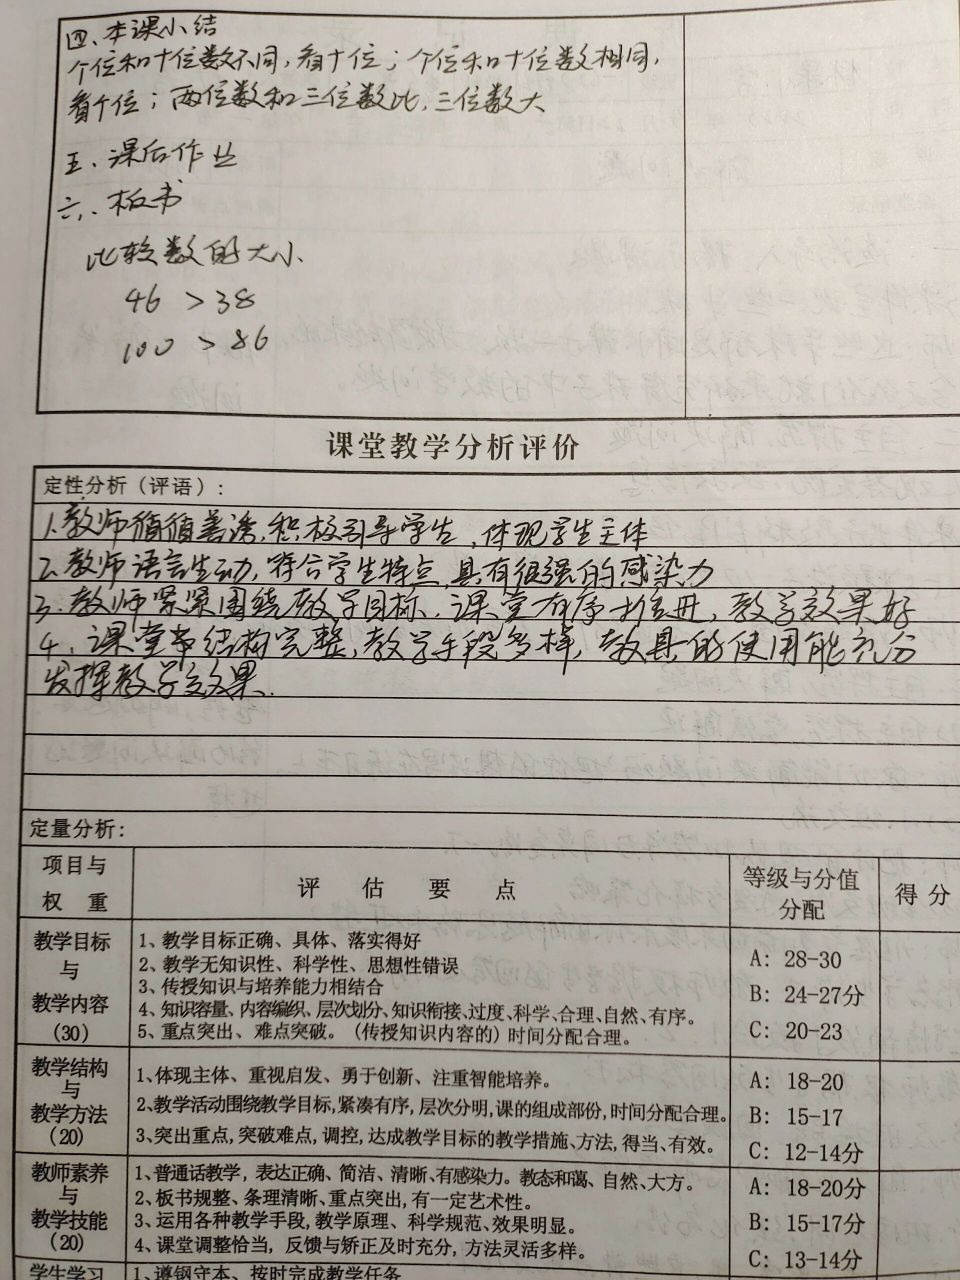 四、本课小结
个位和十位数不同,看十位;个位和十位数相同,
看个位;两位数和三位数比,三位数大
五、课后作业
六、板书
比较数的大小
46 > 38
100 > 86
课堂教学分析评价
定性分析(评语):
1.教师循循善诱,积极引导学生,体现学生主体
2.教师语言生动,符合学生特点,具有很强的感染力
3.教师紧紧围绕教学目标,课堂有序推进,教学效果好
4.课堂节结构完整,教学手段多样,教具的使用能充分
发挥教学效果.
定量分析:
项目与
权 重
评 估 要 点
等级与分值
分配
得 分
教学目标
与
教学内容
(30)
1、教学目标正确、具体、落实得好
2、教学无知识性、科学性、思想性错误
3、传授知识与培养能力相结合
4、知识容量、内容编织、层次划分、知识衔接、过度、科学、合理、自然、有序。
5、重点突出、难点突破。(传授知识内容的)时间分配合理。
A: 28-30
B: 24-27分
C: 20-23
教学结构
与
教学方法
(20)
1、体现主体、重视启发、勇于创新、注重智能培养。
2、教学活动围绕教学目标,紧凑有序,层次分明,课的组成部份,时间分配合理。
3、突出重点,突破难点,调控,达成教学目标的教学措施、方法,得当、有效。
A: 18-20
B: 15-17
C: 12-14分
教师素养
与
教学技能
(20)
1、普通话教学,表达正确、简洁、清晰、有感染力。教态和蔼、自然、大方。
2、板书规整、条理清晰、重点突出,有一定艺术性。
3、运用各种教学手段,教学原理、科学规范、效果明显。
4、课堂调整恰当,反馈与矫正及时充分,方法灵活多样。
A: 18-20分
B: 15-17分
C: 13-14分
学生学习
1、遵钢守本、按时完成教学任务